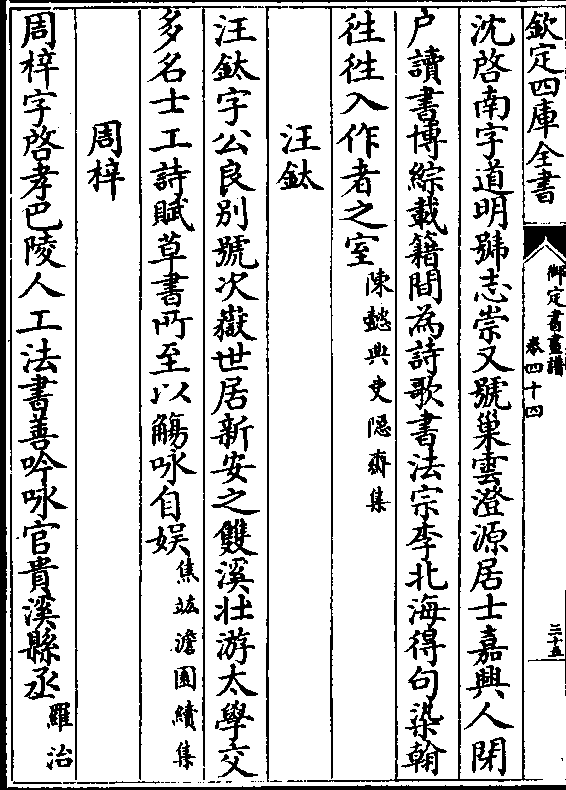 欽定四庫全書
御定書畫譜
卷四十四
二十五
沈啓南字道明號志崇又號巢雲澄源居士嘉興人閉
户讀書博綜載籍間為詩歌書法宗李北海得句染翰
徃徃入作者之室陳懿典吏隱齋集
汪鈦
汪鈦字公良别號次嶽世居新安之雙溪壯游太學交
多名士工詩賦草書所至以觴咏自娱焦竑澹園續集
周梓
周梓字啓孝巴陵人工法書善吟咏官貴溪縣丞羅治